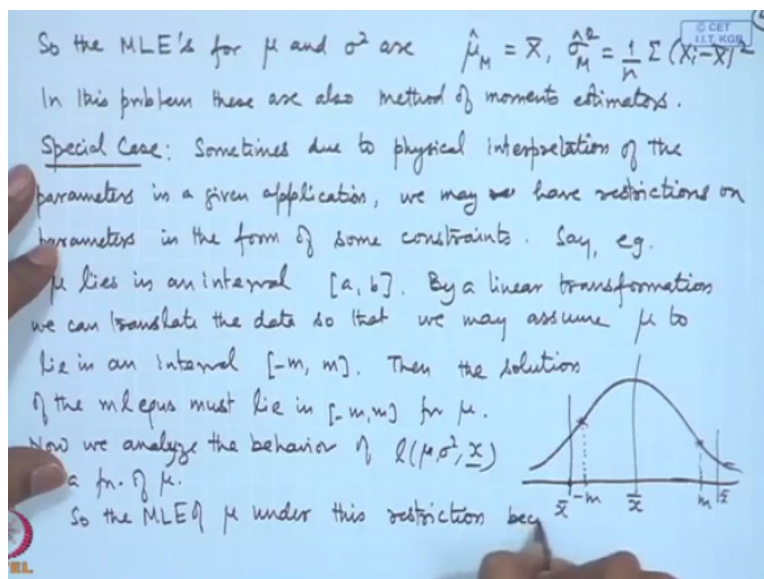 © CET
I.I.T. KGP
So the MLE's for μ and σ² are μ̂_M = X̄, σ̂²_M = 1/n Σ (Xi - X̄)²
In this problem these are also method of moments estimators.
Special Case: Sometimes due to physical interpretation of the
parameters in a given application, we may have restrictions on
parameters in the form of some constraints. Say, eg.
μ lies in an interval [a, b]. By a linear transformation
we can translate the data so that we may assume μ to
lie in an interval [-m, m]. Then the solution
of the ml equs must lie in [-m, m] for μ.
Now we analyze the behavior of l(μ, σ², x)
a fn. of μ.
x̄ -m x̄ m x̄
So the MLE of μ under this restriction bec